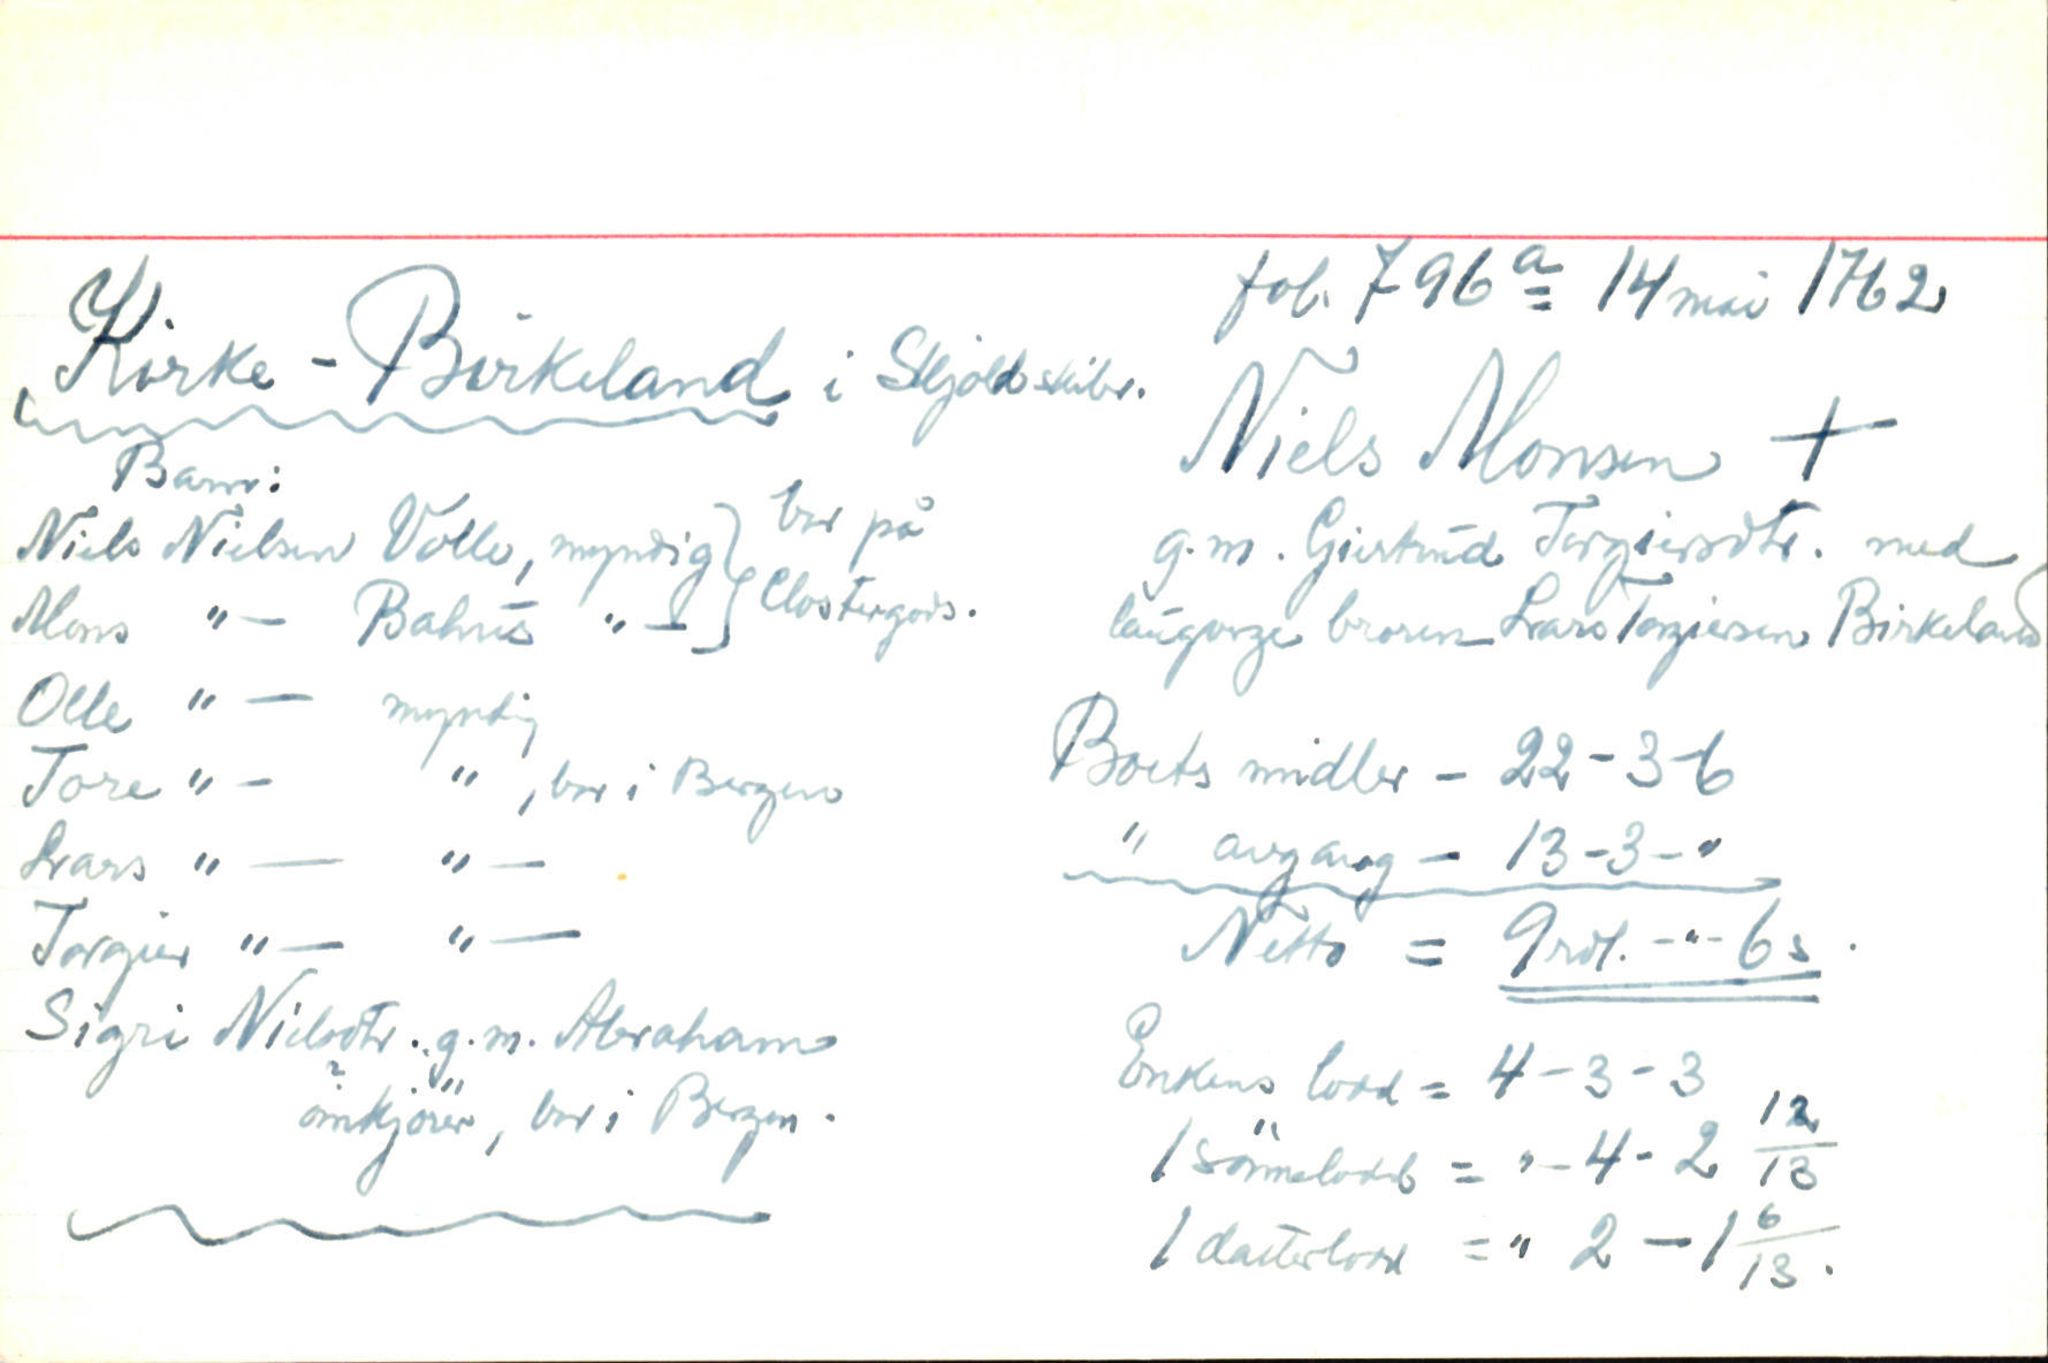 fol. 796a 14 mai 1762
Kirke - Birkeland i Skjoldskibr.
Niels Monsen +
g.m. Giertrud Torgiersdtr. med
laugverge broren Lars Torgiersen Birkeland
Barn:
Niels Nielsen Volle, myndig } bor på
Mons " — Bahus " — } Clostergods.
Olle " — myndig
Tore " — " , bor i Bergen
Lars " — " —
Torgier " — " —
Sigri Nielsdtr. g.m. Abraham
?
omkjörer, bor i Bergen.
Boets midler - 22 - 3 - 6
" avgang - 13 - 3 - "
Netto = 9 rdl. - " - 6 s.
Enkens lodd = 4 - 3 - 3
1 sönnelodd = " - 4 - 2 12/13
1 datterlodd = " 2 - 1 6/13.